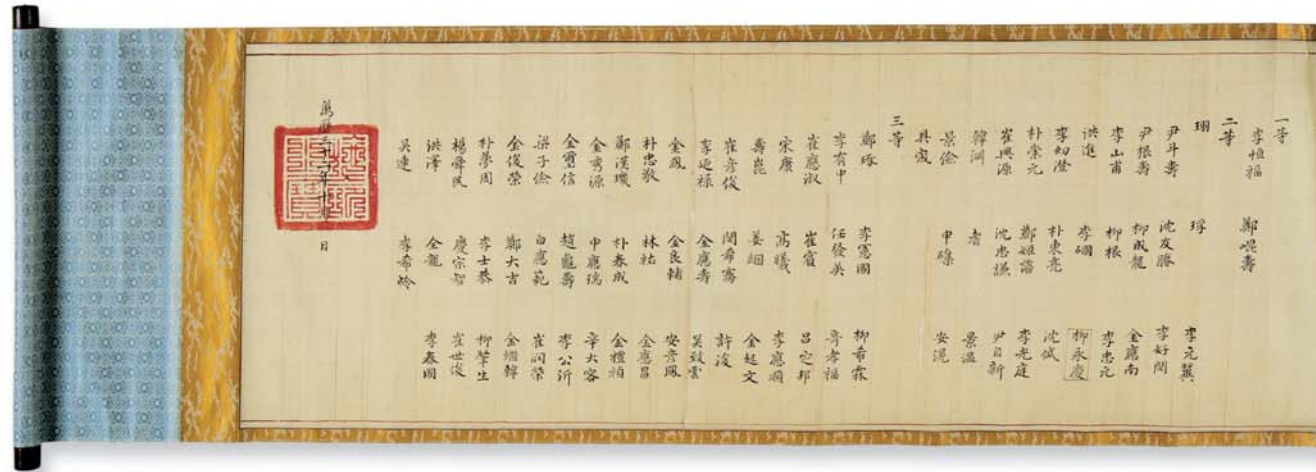 一等
李恒福 鄭崐壽
二等
珝 琈 李元翼
尹斗壽 沈友勝 李好閔
尹根壽 柳成龍 金應南
李山甫 柳根 李忠元
洪進 李 柳永慶
李幼澄 朴東亮
朴崇元 鄭姬藩 李光庭
崔興源 沈忠謙 尹自新
韓淵 耆 景溫
景儉 申磼 安滉
具宬
三等
鄭琢 李憲國 柳希霖
李有中 任發英 奇孝福
崔應淑 崔賓 呂定邦
宋康 高曦 李應順
壽崑 姜絪 金起文
崔彦俊 閔希騫 許浚
李延祿 金應壽 吳致雲
金鳳 金良輔 安彦鳳
朴忠敬 林祐 金應昌
鄭漢璣 朴春成 金禮楨
金秀源 申應瑞 辛大容
金璽信 趙龜壽 李公沂
梁子儉 白應範 崔潤榮
金俊榮 鄭大吉 金繼韓
朴夢周 李士恭 柳肇生
楊舜民 慶宗智 崔世俊
洪澤 金龍 李春國
吳連 李希齡
萬曆三十二年十月 日